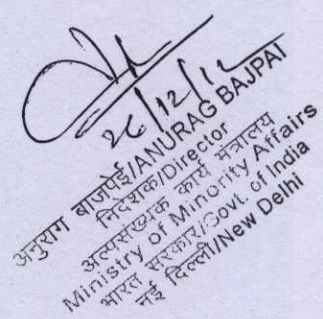 26/12/12
अनुराग बाजपेई/ANURAG BAJPAI
निदेशक/Director
अल्पसंख्यक कार्य मंत्रालय
Ministry of Minority Affairs
भारत सरकार/Govt. of India
नई दिल्ली/New Delhi